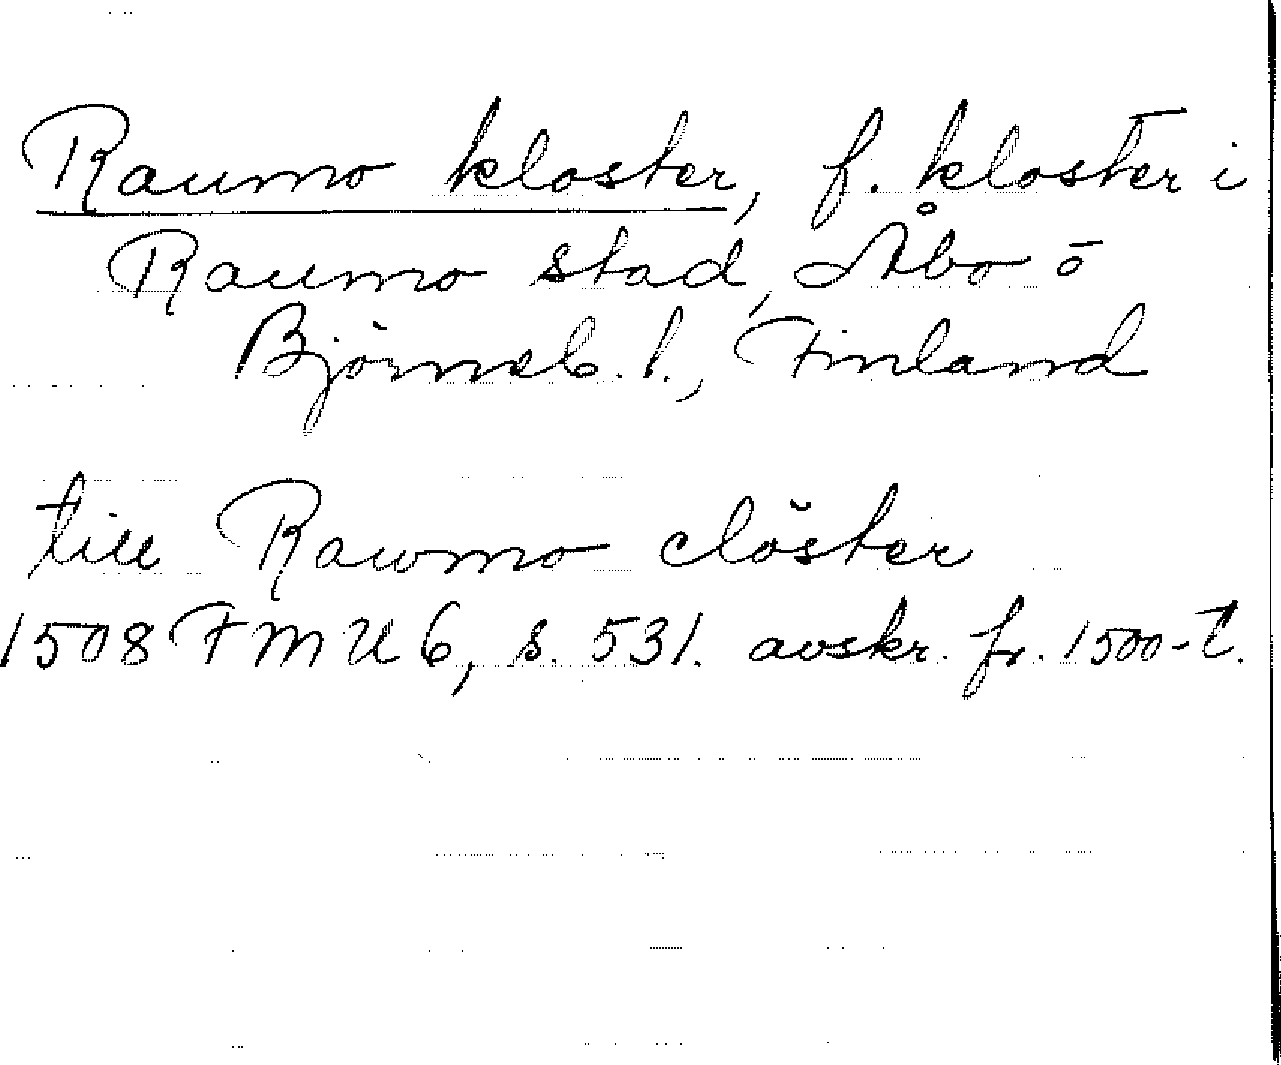 Raumo kloster, f. kloster i
Raumo stad, Åbo o
Björneb. l., Finland
till Rawmo clöster
1508 FMU 6, s. 531. avskr. fr. 1500-t.